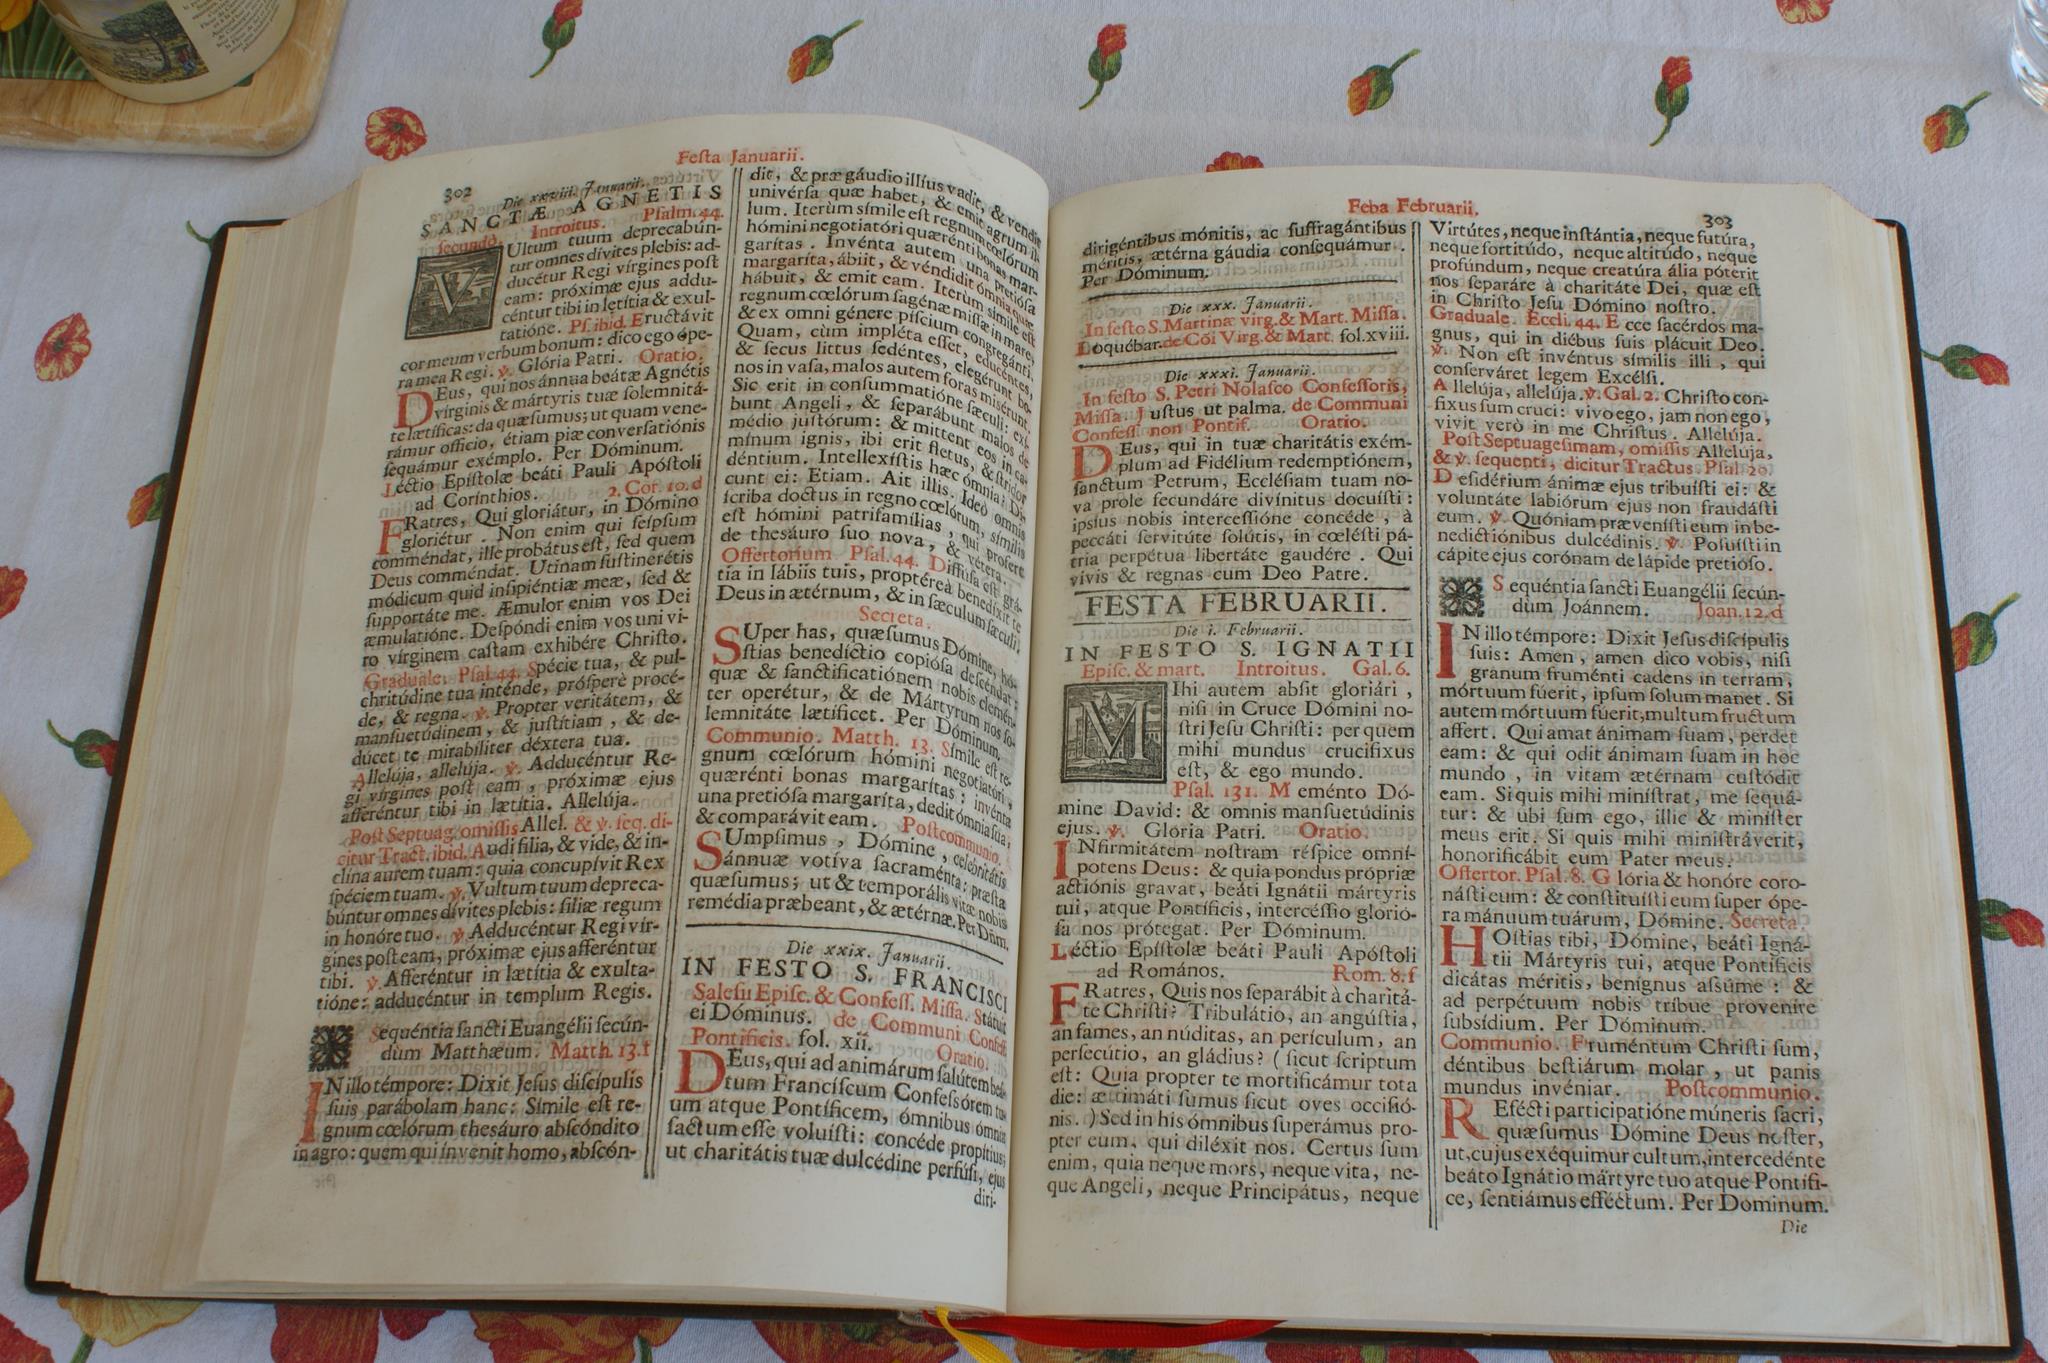 302
Festa Januarii.
Die xxviii. Januarii.
SANCTÆ AGNETIS
secundò. Introitus. Psalm. 44.
VUltum tuum deprecabún-
tur omnes dívites plebis: ad-
ducétur Regi vírgines post
eam: próximæ ejus addu-
céntur tibi in lætítia & exul-
tatióne. Ps. ibid. Eructávit
cor meum verbum bonum: dico ego ópe-
ra mea Regi. ℣. Glória Patri. Oratio.
DEus, qui nos ánnua beátæ Agnétis
vírginis & mártyris tuæ solemnitá-
te lætíficas: da quæsumus; ut quam vene-
rámur officio, étiam piæ conversatiónis
sequámur exémplo. Per Dóminum.
Léctio Epístolæ beáti Pauli Apóstoli
ad Corínthios. 2. Cor. 10. d
FRatres, Qui gloriátur, in Dómino
gloriétur. Non enim qui seípsum
comméndat, ille probátus est, sed quem
Deus comméndat. Utinam sustinerétis
módicum quid insipiéntiæ meæ, sed &
supportáte me. Æmulor enim vos Dei
æmulatióne. Despóndi enim vos uni vi-
ro vírginem castam exhibére Christo.
Graduale. Psal. 44. Spécie tua, & pul-
chritúdine tua inténde, próspere procé-
de, & regna. ℣. Propter veritátem, &
mansuetúdinem, & justítiam, & de-
dúcet te mirabíliter déxtera tua.
Allelúja, allelúja. ℣. Adducéntur Re-
gi vírgines post eam, próximæ ejus
afferéntur tibi in lætítia. Allelúja.
Post Septuag. omissis Allel. & ℣. seq. di-
citur Tract. ibid. Audi fília, & vide, & in-
clína aurem tuam: quia concupívit Rex
spéciem tuam. ℣. Vultum tuum depreca-
búntur omnes dívites plebis: fíliæ regum
in honóre tuo. ℣. Adducéntur Regi vír-
gines post eam, próximæ ejus afferéntur
tibi. ℣. Afferéntur in lætítia & exulta-
tióne: adducéntur in templum Regis.
Sequéntia sancti Euangélii secún-
dùm Matthæum. Matth. 13. f
INillo témpore: Dixit Jesus discípulis
suis parábolam hanc: Símile est re-
gnum cœlórum thesáuro abscóndito
in agro: quem qui ínvenit homo, abscón-
dit, & præ gáudio illíus vadit, & vendit
univérsa quæ habet, & emit agrum il-
lum. Iterùm símile est regnum cœlórum
hómini negotiatóri quærénti bonas mar-
garítas. Invénta autem una pretiósa
margaríta, ábiit, & véndidit ómnia quæ
hábuit, & emit eam. Iterùm símile est
regnum cœlórum sagénæ missæ in mare,
& ex omni génere píscium congregánti.
Quam, cùm impléta esset, educéntes,
& secus littus sedéntes, elegérunt bo-
nos in vasa, malos autem foras misérunt.
Sic erit in consummatióne sæculi: exí-
bunt Angeli, & separábunt malos de
médio justórum: & mittent eos in ca-
mínum ignis, ibi erit fletus, & stridor
déntium. Intellexístis hæc ómnia? Di-
cunt ei: Etiam. Ait illis. Ideò omnis
scriba doctus in regno cœlórum, símilis
est hómini patrifamílias, qui profert
de thesáuro suo nova, & vétera.
Offertorium Psal. 44. Diffúsa est grá-
tia in lábiis tuis, proptéreà benedíxit te
Deus in ætérnum, & in sæculum sæculi.
Secreta.
SUper has, quæsumus Dómine, hó-
stias benedíctio copiósa descéndat;
quæ & sanctificatiónem nobis clemén-
ter operétur, & de Mártyrum nos so-
lemnitáte lætíficet. Per Dóminum.
Communio. Matth. 13. Símile est re-
gnum cœlórum hómini negotiatóri,
quærénti bonas margarítas: invénta
una pretiósa margaríta, dedit ómnia sua,
& comparávit eam. Postcommunio.
SUmpsimus, Dómine, celebritátis
ánnuæ votíva sacraménta: præsta
quæsumus; ut & temporális vitæ nobis
remédia præbeant, & ætérnæ. Per Dñm.
Die xxix. Januarii.
IN FESTO S. FRANCISCI
Salesii Episc. & Confess. Missa. Státuit
ei Dóminus. de Communi Confess.
Pontificis. fol. xii. Oratio.
DEus, qui ad animárum salútem beá-
tum Francíscum Confessórem tu-
um atque Pontíficem, ómnibus ómnia
factum esse voluísti: concéde propítius;
ut charitátis tuæ dulcédine perfúsi, ejus
diri-
Feba Februarii.
303
dirigéntibus mónitis, ac suffragántibus
méritis, ætérna gáudia consequámur.
Per Dóminum.
Die xxx. Januarii.
In festo S. Martinæ virg. & Mart. Missa.
Loquébar. de Cõi Virg. & Mart. fol. xviii.
Die xxxi. Januarii.
In festo S. Petri Nolasco Confessoris,
Missa. Justus ut palma. de Communi
Confess. non Pontif. Oratio.
DEus, qui in tuæ charitátis exém-
plum ad Fidélium redemptiónem,
sanctum Petrum, Ecclésiam tuam no-
va prole fecundáre divínitus docuísti:
ipsíus nobis intercessióne concéde, à
peccáti servitúte solútis, in cœlésti pá-
tria perpétua libertáte gaudére. Qui
vivis & regnas cum Deo Patre.
FESTA FEBRUARII.
Die i. Februarii.
IN FESTO S. IGNATII
Episc. & mart. Introitus. Gal. 6.
MIhi autem absit gloriári,
nisi in Cruce Dómini no-
stri Jesu Christi: per quem
mihi mundus crucifíxus
est, & ego mundo.
Psal. 131. Meménto Dó-
mine David: & omnis mansuetúdinis
ejus. ℣. Glória Patri. Oratio.
INfirmitátem nostram réspice omní-
potens Deus: & quia pondus própriæ
actiónis gravat, beáti Ignátii mártyris
tui, atque Pontíficis, intercéssio glorió-
sa nos prótegat. Per Dóminum.
Léctio Epístolæ beáti Pauli Apóstoli
ad Romános. Rom. 8. f
FRatres, Quis nos separábit à charitá-
te Christi? Tribulátio, an angústia,
an fames, an núditas, an perículum, an
persecútio, an gládius? ( sicut scriptum
est: Quia propter te mortificámur tota
die: æstimáti sumus sicut oves occisió-
nis. ) Sed in his ómnibus superámus pro-
pter eum, qui diléxit nos. Certus sum
enim, quia neque mors, neque vita, ne-
que Angeli, neque Principátus, neque
Virtútes, neque instántia, neque futúra,
neque fortitúdo, neque altitúdo, neque
profúndum, neque creatúra ália póterit
nos separáre à charitáte Dei, quæ est
in Christo Jesu Dómino nostro.
Graduale. Eccli. 44. Ecce sacérdos ma-
gnus, qui in diébus suis plácuit Deo.
℣. Non est invéntus símilis illi, qui
conserváret legem Excélsi.
Allelúja, allelúja. ℣. Gal. 2. Christo con-
fixus sum cruci: vivo ego, jam non ego,
vivit verò in me Christus. Allelúja.
Post Septuagesimam, omissis Allelúja,
& ℣. sequenti, dicitur Tractus. Psal. 20.
Desidérium ánimæ ejus tribuísti ei: &
voluntáte labiórum ejus non fraudásti
eum. ℣. Quóniam prævenísti eum in be-
nedictiónibus dulcédinis. ℣. Posuísti in
cápite ejus corónam de lápide pretióso.
Sequéntia sancti Euangélii secún-
dùm Joánnem. Joan. 12. d
IN illo témpore: Dixit Jesus discípulis
suis: Amen, amen dico vobis, nisi
granum fruménti cadens in terram,
mórtuum fúerit, ipsum solum manet. Si
autem mórtuum fúerit, multum fructum
affert. Qui amat ánimam suam, perdet
eam: & qui odit ánimam suam in hoc
mundo, in vitam ætérnam custódit
eam. Si quis mihi ministrat, me sequá-
tur: & ubi sum ego, illic & miníster
meus erit. Si quis mihi ministráverit,
honorificábit eum Pater meus.
Offertor. Psal. 8. Glória & honóre coro-
násti eum: & constituísti eum super ópe-
ra mánuum tuárum, Dómine. Secreta.
HOstias tibi, Dómine, beáti Igná-
tii Mártyris tui, atque Pontíficis
dicátas méritis, benígnus assúme: &
ad perpétuum nobis tríbue provenire
subsídium. Per Dóminum.
Communio. Fruméntum Christi sum,
déntibus bestiárum molar, ut panis
mundus invéniar. Postcommunio.
REfécti participatióne múneris sacri,
quæsumus Dómine Deus noster,
ut, cujus exéquimur cultum, intercedénte
beáto Ignátio mártyre tuo atque Pontífi-
ce, sentiámus efféctum. Per Dominum.
Die